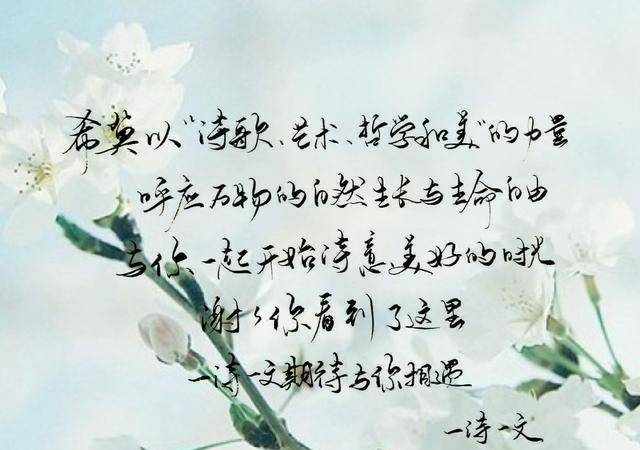 希莫以“诗歌、艺术、哲学和美”的力量
呼应万物的自然生长与生命自由
与你一起开始诗意美好的时光
谢谢你看到了这里
一诗一文期待与你相遇
一诗一文